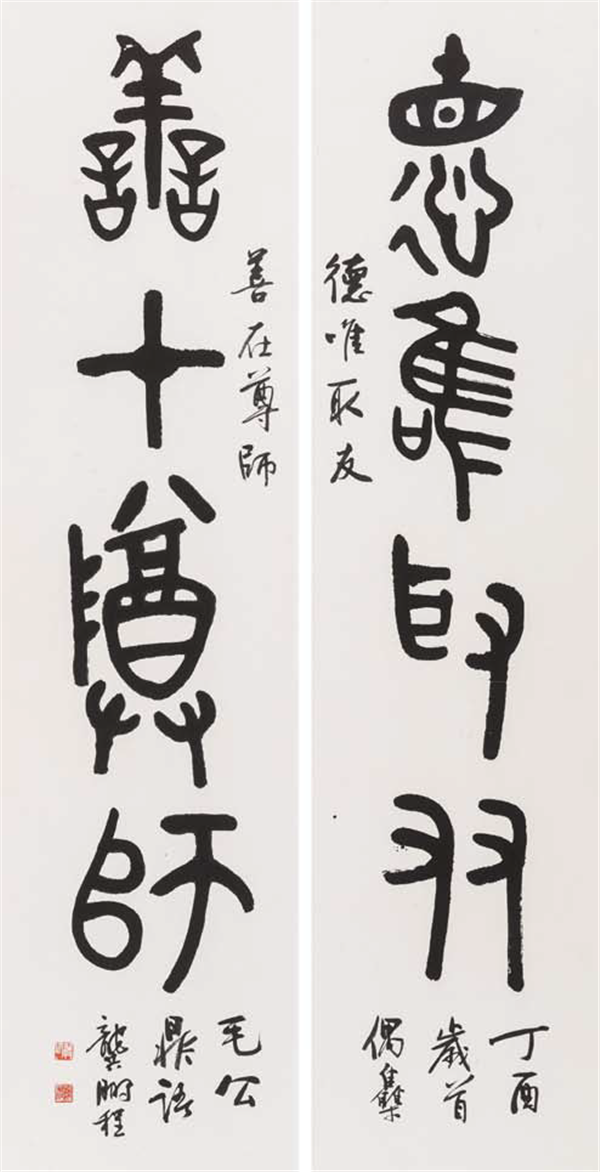 德唯取友
德唯取友
丁酉
歲首
偶集
善在尊師
善在尊師
毛公
鼎語
龔鵬程